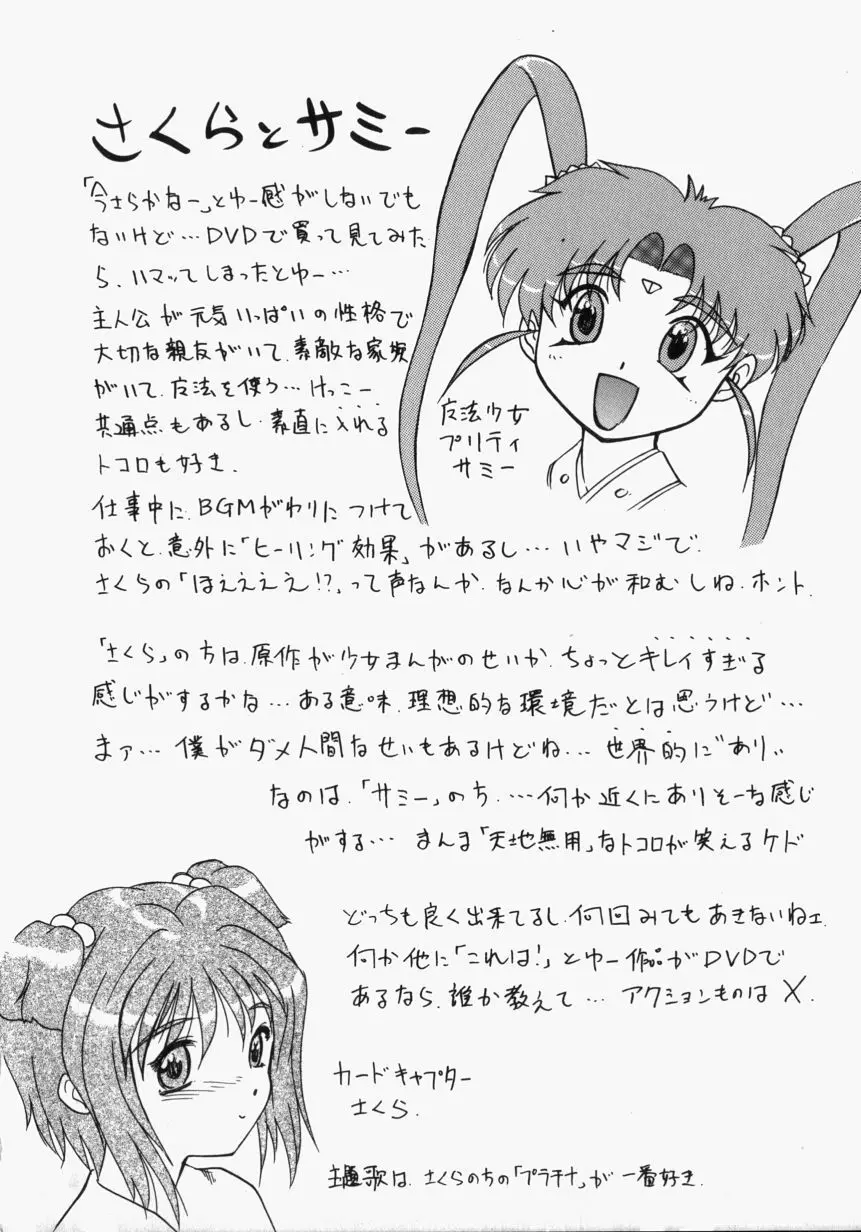 さくらとサミー
「今さらかなー」とゆー感がしないでも
ないけど…DVDで買って見てみた
ら、ハマッてしまったとゆー…
主人公が元気いっぱいの性格で
大切な親友がいて、素敵な家族
がいて、魔法を使う…けっこー
共通点もあるし、素直に入れる
トコロも好き.
魔法少女
プリティ
サミー
仕事中に、BGMがわりにつけて
おくと、意外に「ヒーリング効果」があるし…いやマジで.
さくらの「ほええええ!?」って声なんか、なんか心が和むしね、ホント.
「さくら」の方は、原作が少女まんがのせいか、ちょっとキレイすぎる
感じがするかな…ある意味、理想的な環境だとは思うけど…
まァ…僕がダメ人間なせいもあるけどね…世界的に"あり"
なのは、「サミー」のち….何か近くにありそーな感じ
がする…まんま「天地無用」なトコロが笑えるケド
どっちも良く出来てるし、何回みてもあきないねェ.
何か他に「これは!」とゆー作品がDVDで
あるなら、誰か教えて…アクションものはX.
カードキャプター
さくら.
主題歌は、さくらのちの「プラチナ」が一番好き.